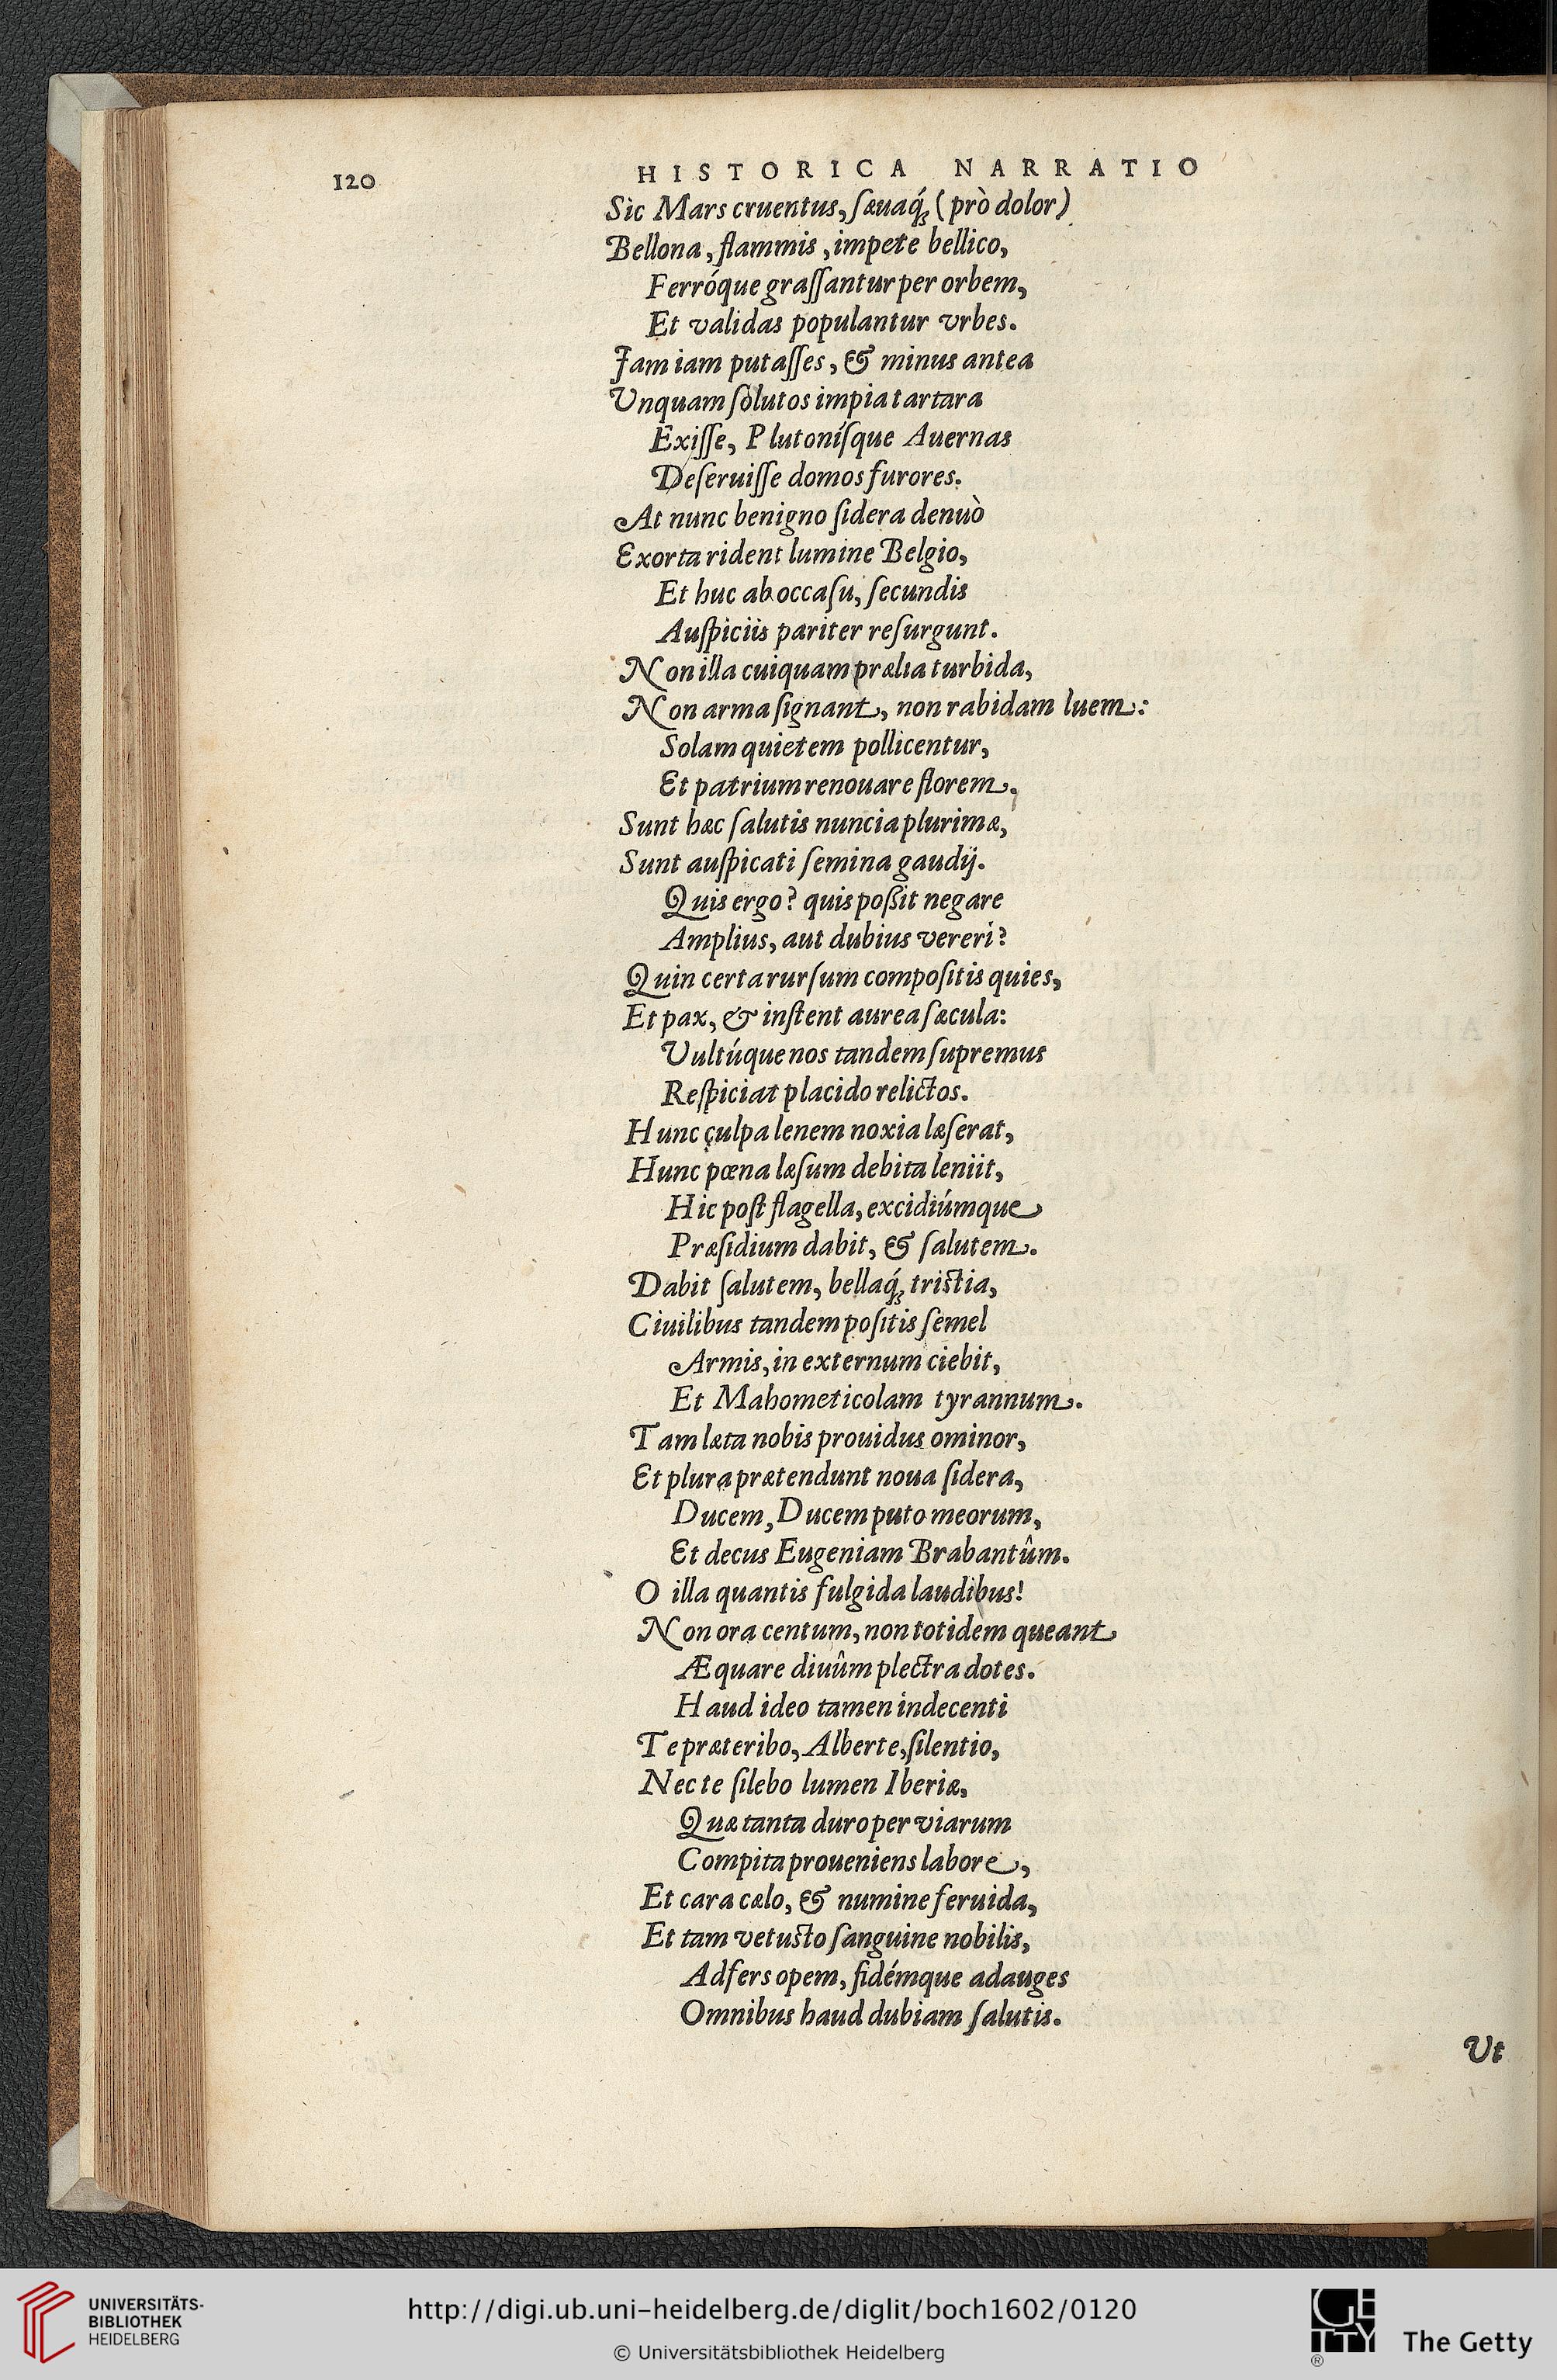 120
HISTORICA NARRATIO
Sic Mars cruentus, ſæuaq́ꝫ (prò dolor)
Bellona, flammis, impete bellico,
Ferróque graſſantur per orbem,
Et validas populantur vrbes.
Jam iam putaſſes, & minus antea
Unquam ſolutos impia tartara
Exiſſe, Plutoníſque Auernas
Deſeruiſſe domos furores.
At nunc benigno ſidera denuò
Exorta rident lumine Belgio,
Et huc ab occaſu, ſecundis
Auſpiciis pariter reſurgunt.
Non illa cuiquam prælia turbida,
Non arma ſignant, non rabidam luem:
Solam quietem pollicentur,
Et patrium renouare florem.
Sunt hæc ſalutis nuncia plurimæ,
Sunt auſpicati ſemina gaudij.
Quis ergo? quis poſsit negare
Amplius, aut dubius vereri?
Quin certa rurſum compoſitis quies,
Et pax, & inſtent aurea ſæcula:
Vultúque nos tandem ſupremus
Reſpiciat placido relictos.
Hunc culpa lenem noxia læſerat,
Hunc pœna læſum debita leniit,
Hic poſt flagella, excidiúmque
Præſidium dabit, & ſalutem.
Dabit ſalutem, bellaq́ꝫ triſtia,
Ciuilibus tandem poſitis ſemel
Armis, in externum ciebit,
Et Mahometicolam tyrannum.
Tam læta nobis prouidus ominor,
Et plura prætendunt noua ſidera,
Ducem, Ducem puto meorum,
Et decus Eugeniam Brabantûm.
O illa quantis fulgida laudibus!
Non ora centum, non totidem queant
Æquare diuûm plectra dotes.
Haud ideo tamen indecenti
Te præteribo, Alberte, ſilentio,
Nec te ſilebo lumen Iberiæ,
Quæ tanta duro per viarum
Compita proueniens labore,
Et cara cælo, & numine feruida,
Et tam vetuſto ſanguine nobilis,
Adfers opem, fidémque adauges
Omnibus haud dubiam ſalutis.
Ut
UNIVERSITÄTS-
BIBLIOTHEK
HEIDELBERG
http://digi.ub.uni-heidelberg.de/diglit/boch1602/0120
© Universitätsbibliothek Heidelberg
GETTY
®
The Getty